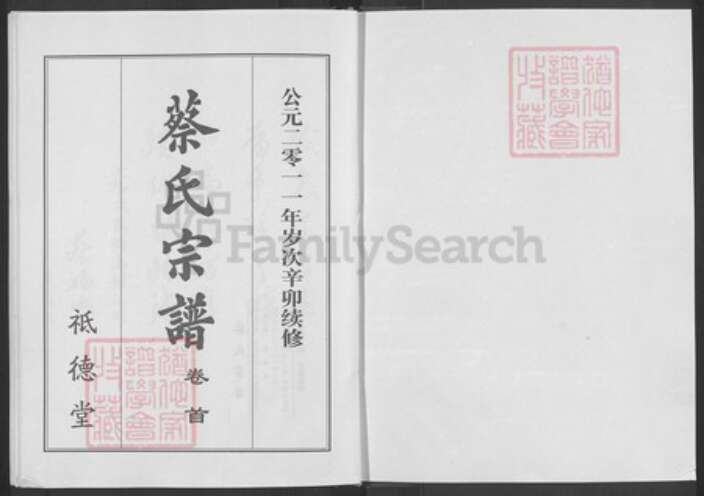 公元二零一一年岁次辛卯续修
蔡氏宗譜
卷首
祗德堂
FamilySearch